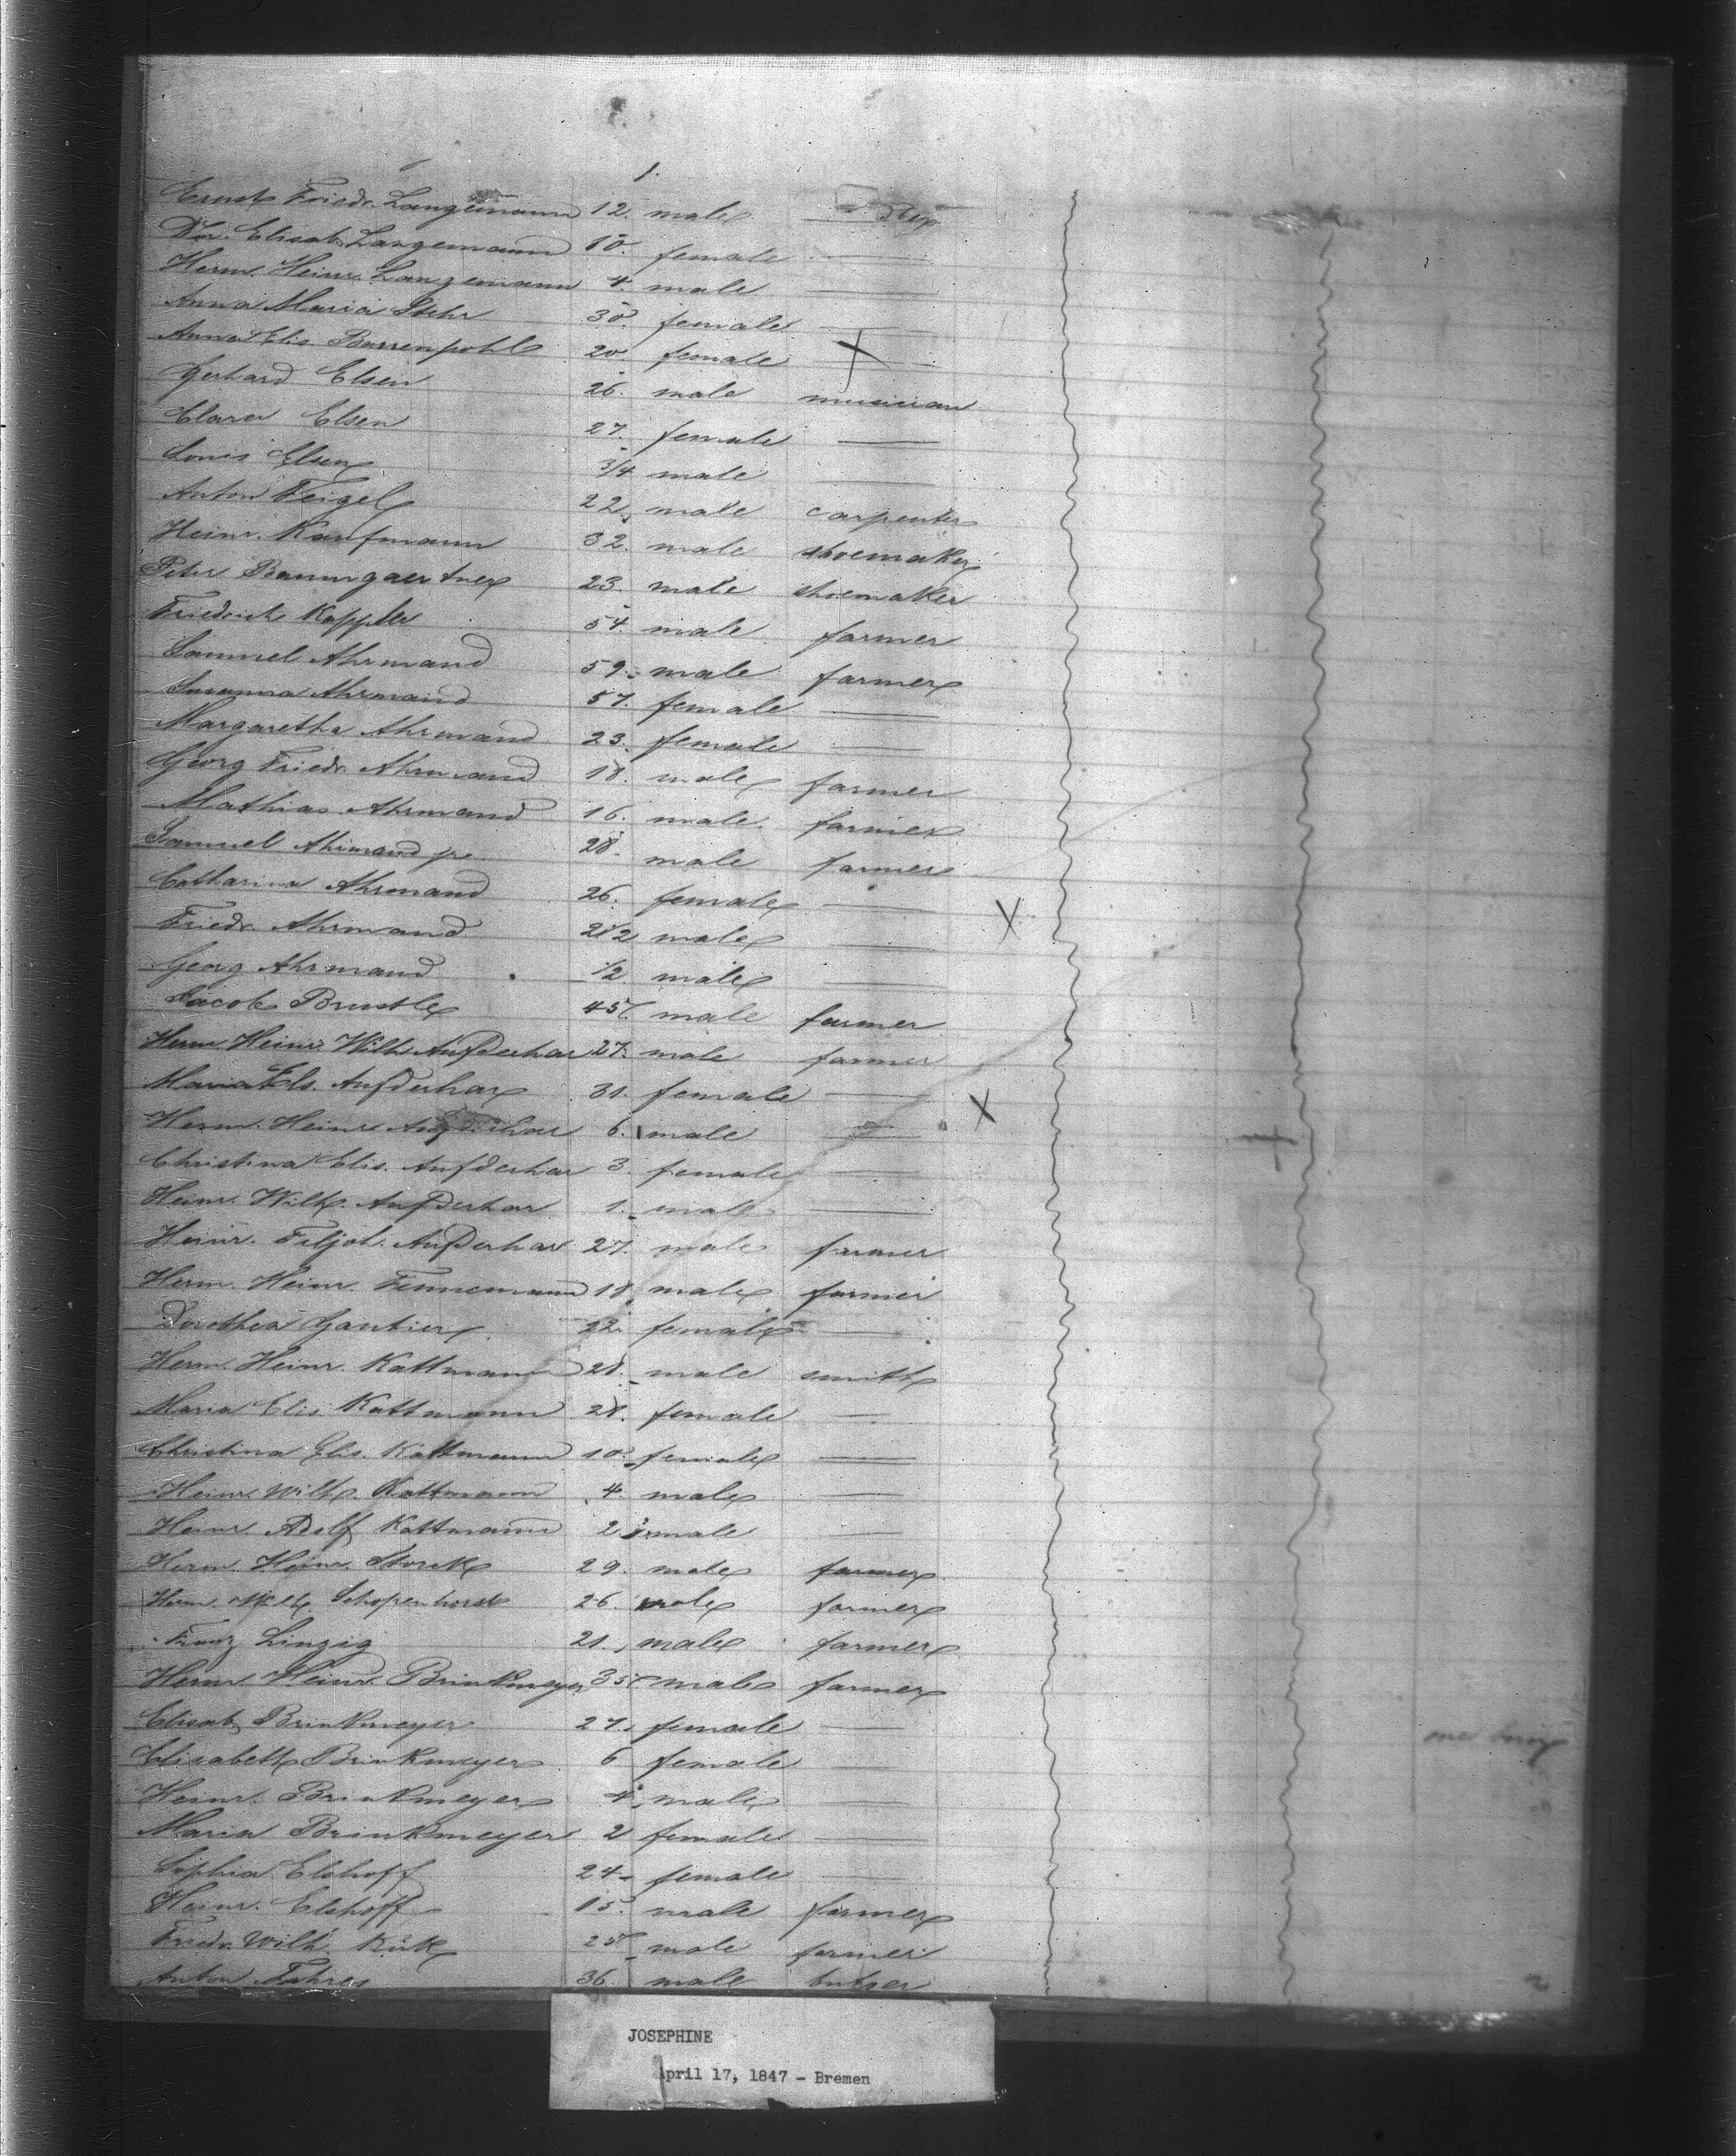 1.
Ernst Friedr. Langemann 12. male
Dor. Elisab. Langemann 10. female —
Herm. Heinr. Langemann 4. male —
Anna Maria Stehr 30. female —
Anna Elis. Barrenpohl 20 female —
Gerhard Elsen 26. male musician
Clara Elsen 27. female —
Louis Elsen 3/4 male —
Anton Feigel 22. male carpenter
Heinr. Kaufmann 32. male shoemaker
Peter Baumgaertner 23. male shoemaker
Friedrich Kappler 54. male farmer
Samuel Ahrmand 59. male farmer
Susanna Ahrmand 57. female —
Margaretha Ahrmand 23. female —
Georg Friedr. Ahrmand 18. male farmer
Mathias Ahrmand 16. male farmer
Samuel Ahrmand jr. 28. male farmer
Catharina Ahrmand 26. female — X
Friedr. Ahrmand 2 1/2 male —
Georg Ahrmand 1/2 male —
Jacob Brustle 45. male farmer
Herm. Heinr. Wilh. Aufderhar 27. male farmer
Maria Els. Aufderhar 31. female — X
Herm. Heinr. Aufderhar 6. male —
Christina Elis. Aufderhar 3. female —
Heinr. Wilh. Aufderhar 1. male —
Heinr. Aufderhar 27. male farmer
Herm. Heinr. Finnemann 18. male farmer
Dorothea Gautier 22. female —
Herm. Heinr. Kattmann 28. male smith
Maria Elis. Kattmann 28. female —
Christina Elis. Kattmann 10. female —
Heinr. Wilh. Kattmann 4. male —
Heinr. Adolf Kattmann 2 male —
Herm. Heinr. Storck 29. male farmer
Schopenhorst 26. male farmer
Franz Linzig 21. male farmer
Herm. Heinr. Brinkmeyer 35. male farmer
Elisab. Brinkmeyer 27. female —
Elisabeth Brinkmeyer 6 female —
Heinr. Brinkmeyer 4. male —
Maria Brinkmeyer 2 female —
Sophia Elshoff 24 female —
Heinr. Elshoff 15. male farmer
Friedr. Wilh. Kük 25 male farmer
Anton Fahres 36. male
JOSEPHINE
April 17, 1847 - Bremen